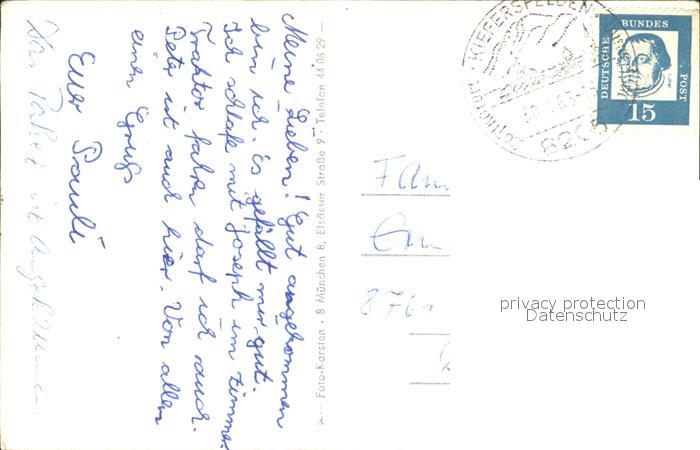 Meine Lieben! Gut angekommen
bin ich. Es gefällt mir gut.
Ich schlafe mit Joseph im Zimmer.
Traktor fahren darf ich auch.
Peter ist auch hier. Von allen
einen Gruß
Euer Pauli
ist
Foto-Karsten · 8 München 8, Elsässer Straße 9 · Telefon 44 06 29
KIEFERSFELDEN
8205
DEUTSCHE
BUNDES
POST
Luther
15
Fam
876
privacy protection
Datenschutz